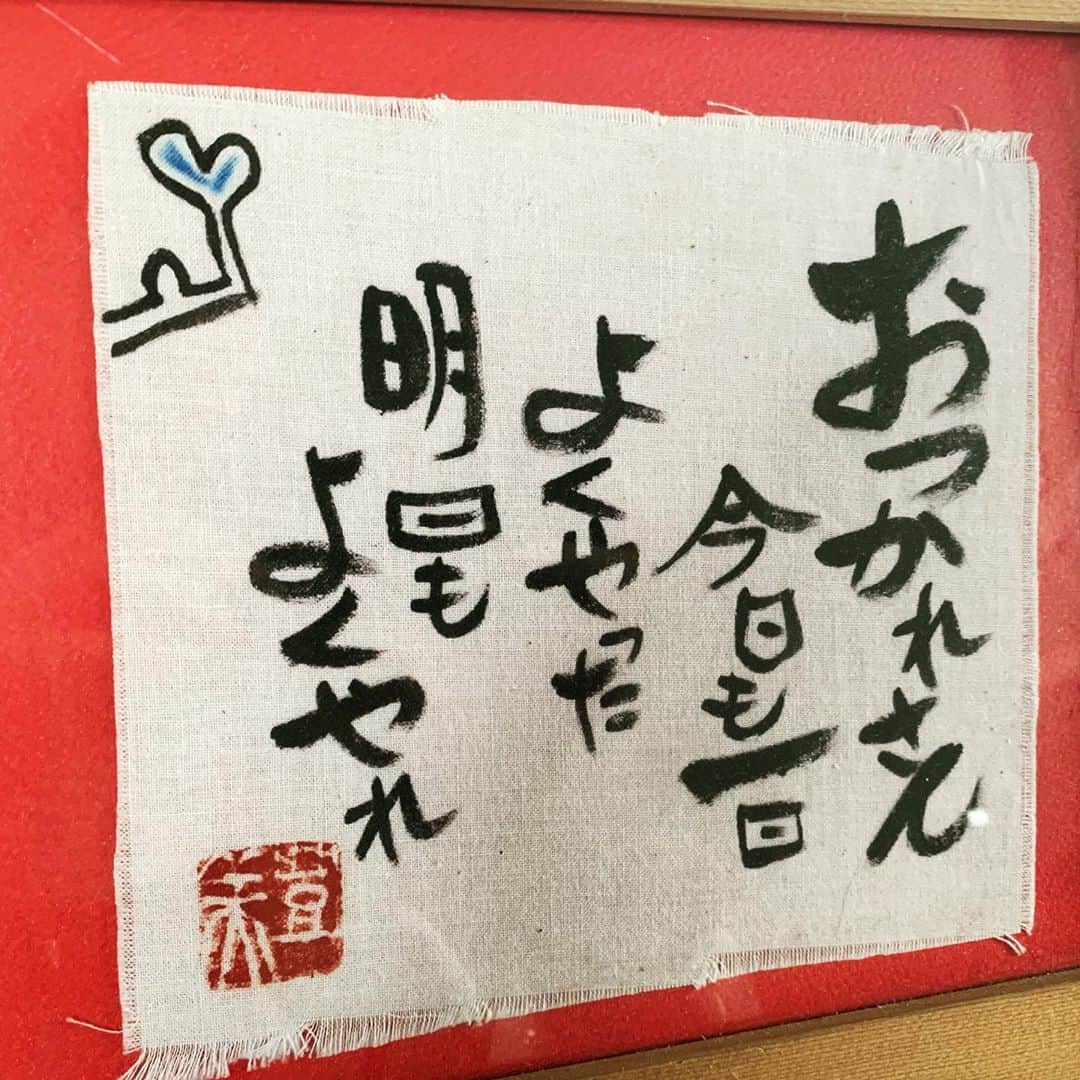 おつかれさん
今日も一日
よくやった
明日も
よくやれ